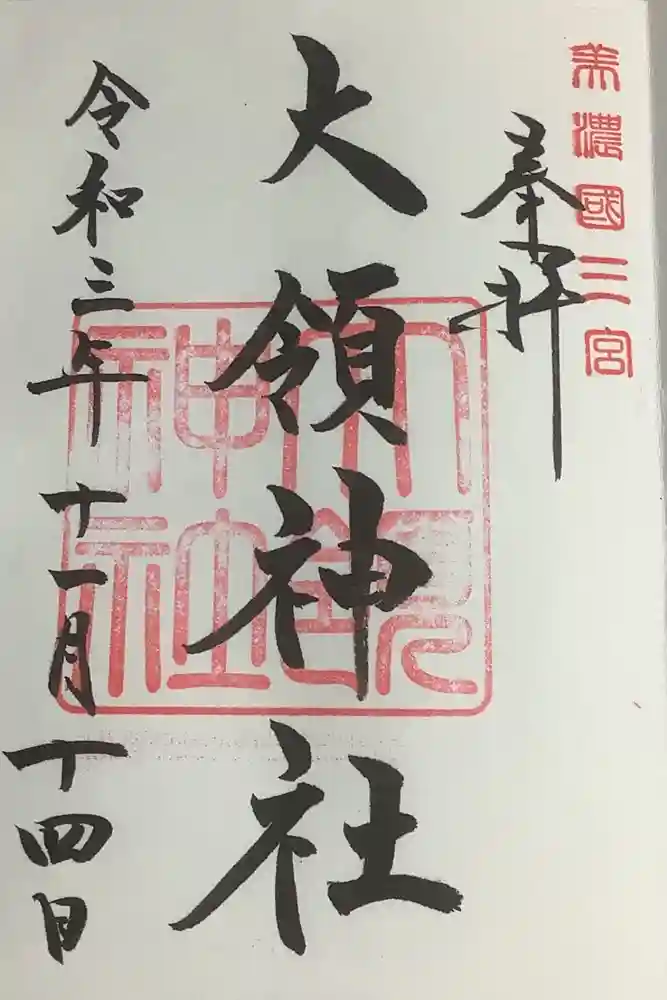 美濃國三宮
奉拝
大領神社
大領神社
令和三年十一月十四日